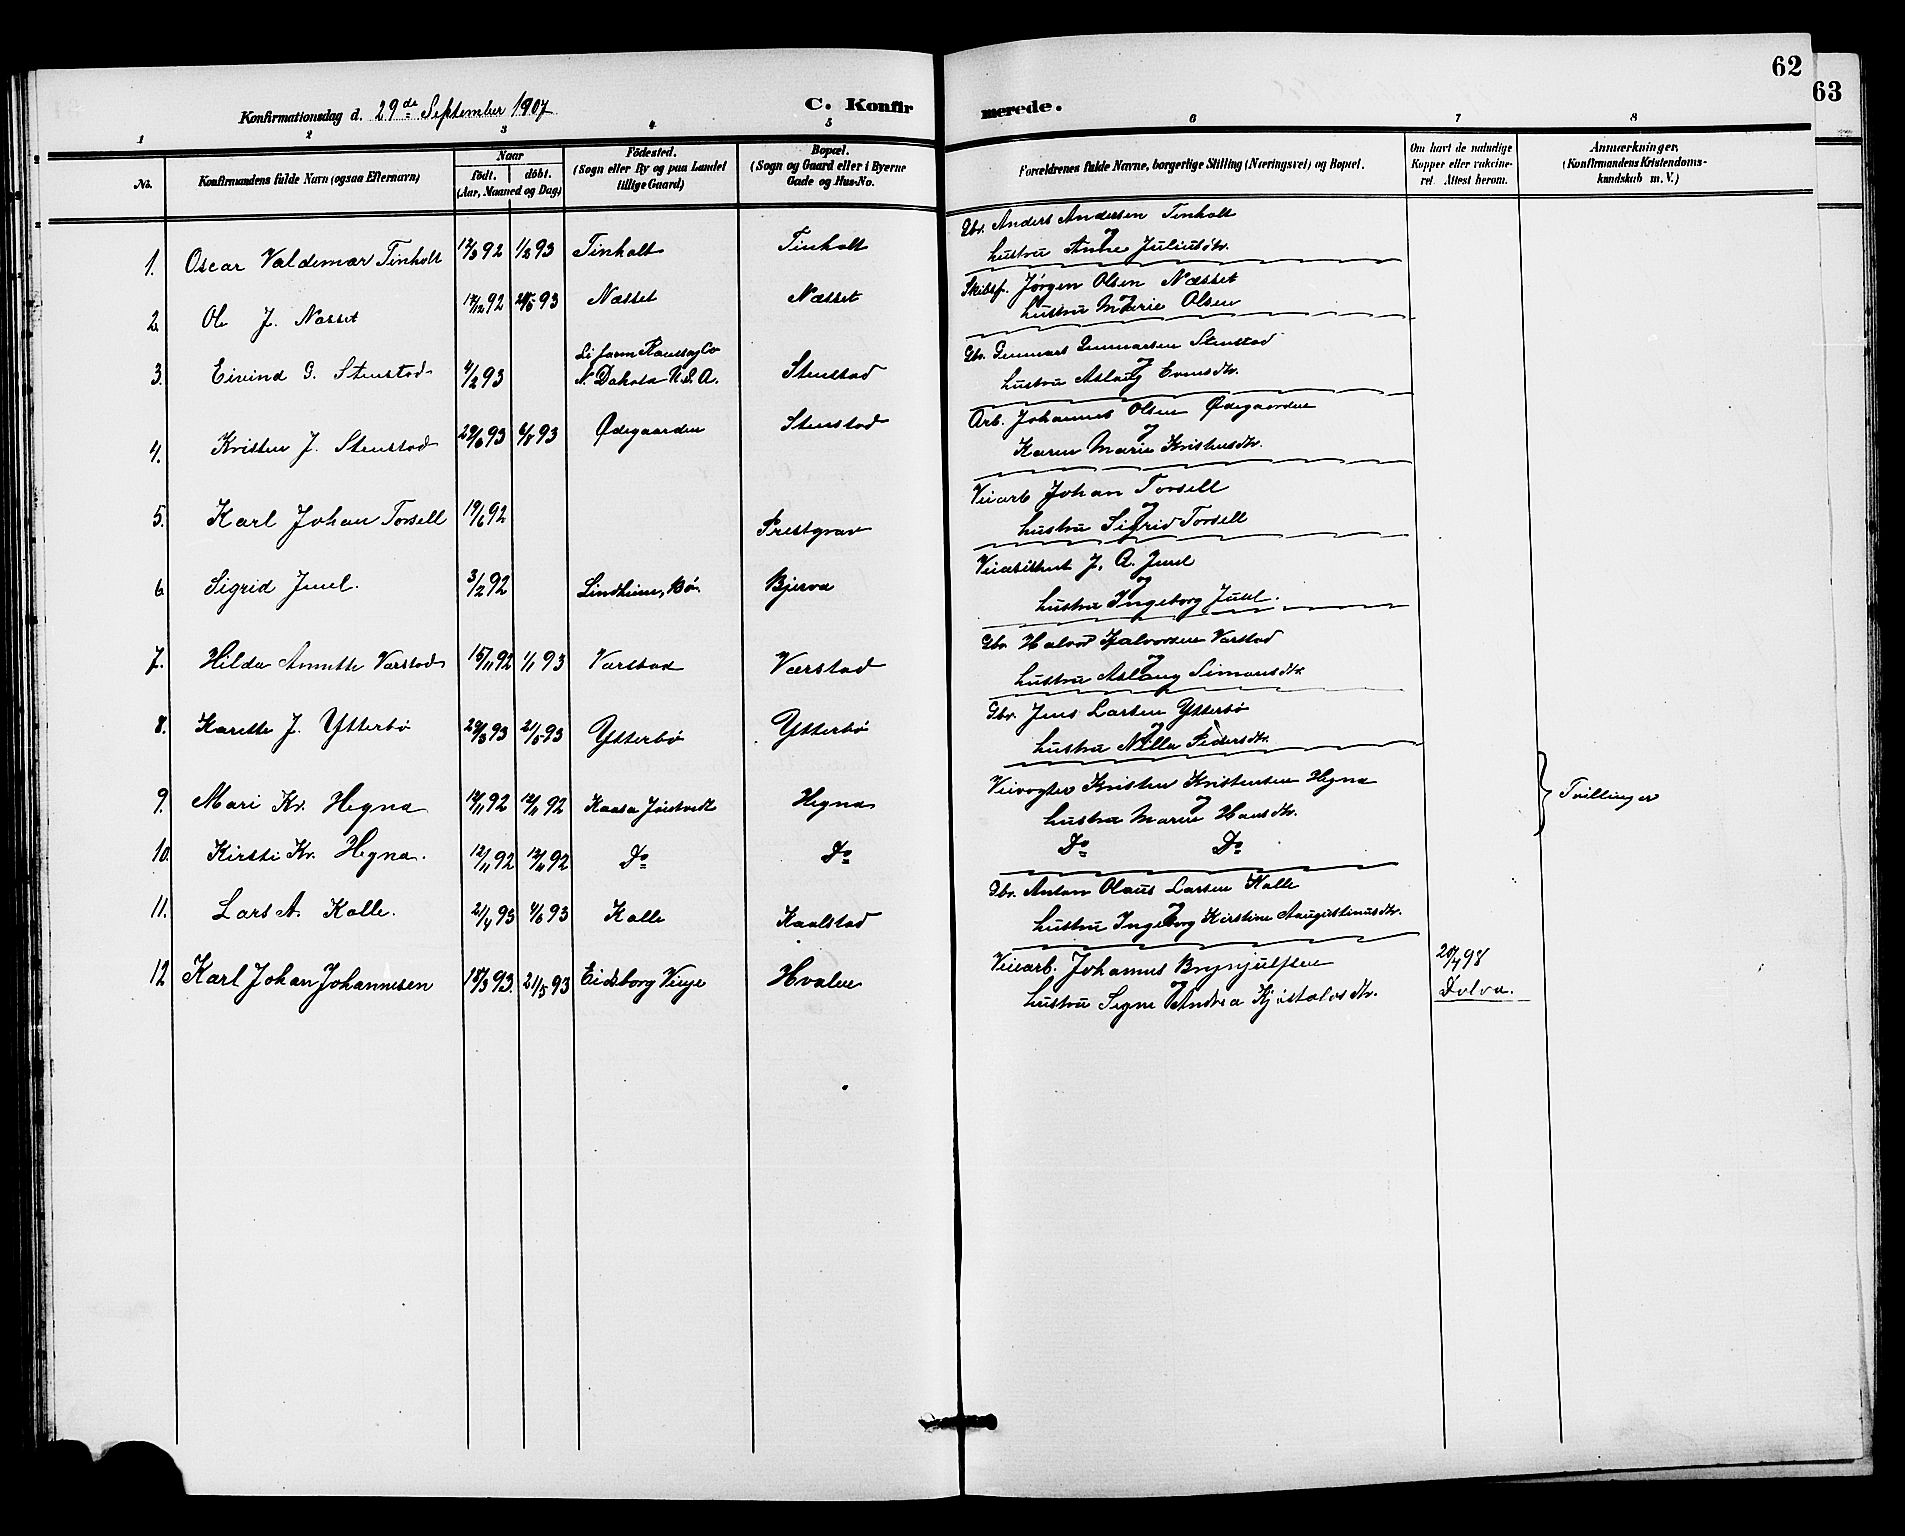 62
63
Konfirmationsdag d. 29de September 1907
C. Konfirmerede.
1 2 3 4 5 6 7 8
No.
Konfirmandens fulde Navn (ogsaa Efternavn)
Naar
födt. döbt.
(Aar, Maaned og Dag)
Födested.
(Sogn eller By og paa Landet
tillige Gaard)
Bopæl.
(Sogn og Gaard eller i Byerne
Gade og Hus-No.
Forældrenes fulde Navne, borgerlige Stilling (Næringsvei) og Bopæl.
Om havt de naturlige
Kopper eller vakcine-
ret. Attest herom.
Anmærkninger,
(Konfirmandens Kristendoms-
kundskab m. V.)
1. Oscar Valdemar Tinholt 92 93 Tinholt Tinholt Gbr. Anders Andersen Tinholt
og
hustru Anne Juliusdtr.
2. Ole J. Næsset 92 93 Næsset Næsset Skibsf. Jørgen Olsen Næsset
og
hustru Marie Olsen
3. Eivind G. Stenstad 4/2 93 N. Dakota U.S.A. Stenstad Gbr. Gunnar Gunnarsen Stenstad
og
hustru Aslaug
4. Kristen J. Stenstad 29/6 93 93 Ødegaarden Stenstad Arb. Johannes Olsen Ødegaarden
og
Karen Marie Kristensdtr.
5. Karl Johan Torsell 19/6 92 Prestgrav Veiarb Johan Torsell
og
hustru Sigrid Torsell
6. Sigrid Juul. 3/2 92 Lindheim, Bø. Bjerva Veiassistent J. A. Juul
og
hustru Ingeborg Juul.
7. Hilda Annette Værstad 15/11 92 1/1 93 Værstad Værstad Gbr. Halvor Halvorsen Værstad
og
hustru Aslaug Simonsdtr.
8. Karette J. Ytterbø 29/3 93 21/5 93 Ytterbø Ytterbø Gbr. Jens Larsen Ytterbø
og
hustru Nilla Pedersdtr.
9. Mari Kr. Hegna 12/11 92 92 Kaasa Hegna Veivogter Kristen Kristensen Hegna
og
hustru Maren Hansdtr.
Tvillinger
10. Kirsti Kr. Hegna. 12/11 92 92 Do Do Do Do
11. Lars A. Kolle. 21/4 93 4/6 93 Kolle Kaalstad Gbr. Anton Olaus Larsen Kolle
og
hustru Ingeborg Kirstine Augustinusdtr.
12 Karl Johan Johannesen 18/3 93. 21/5 93 Eidsborg Vinje Hvalen Veiearb. Johannes Brynjulfsen
og
hustru Signe Andrea Kjøstolvsdtr.
20/4 98
Dolva.